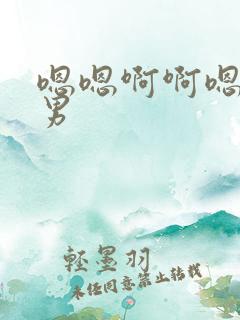 嗯嗯啊啊嗯
男
轻墨羽
未经同意禁止转载